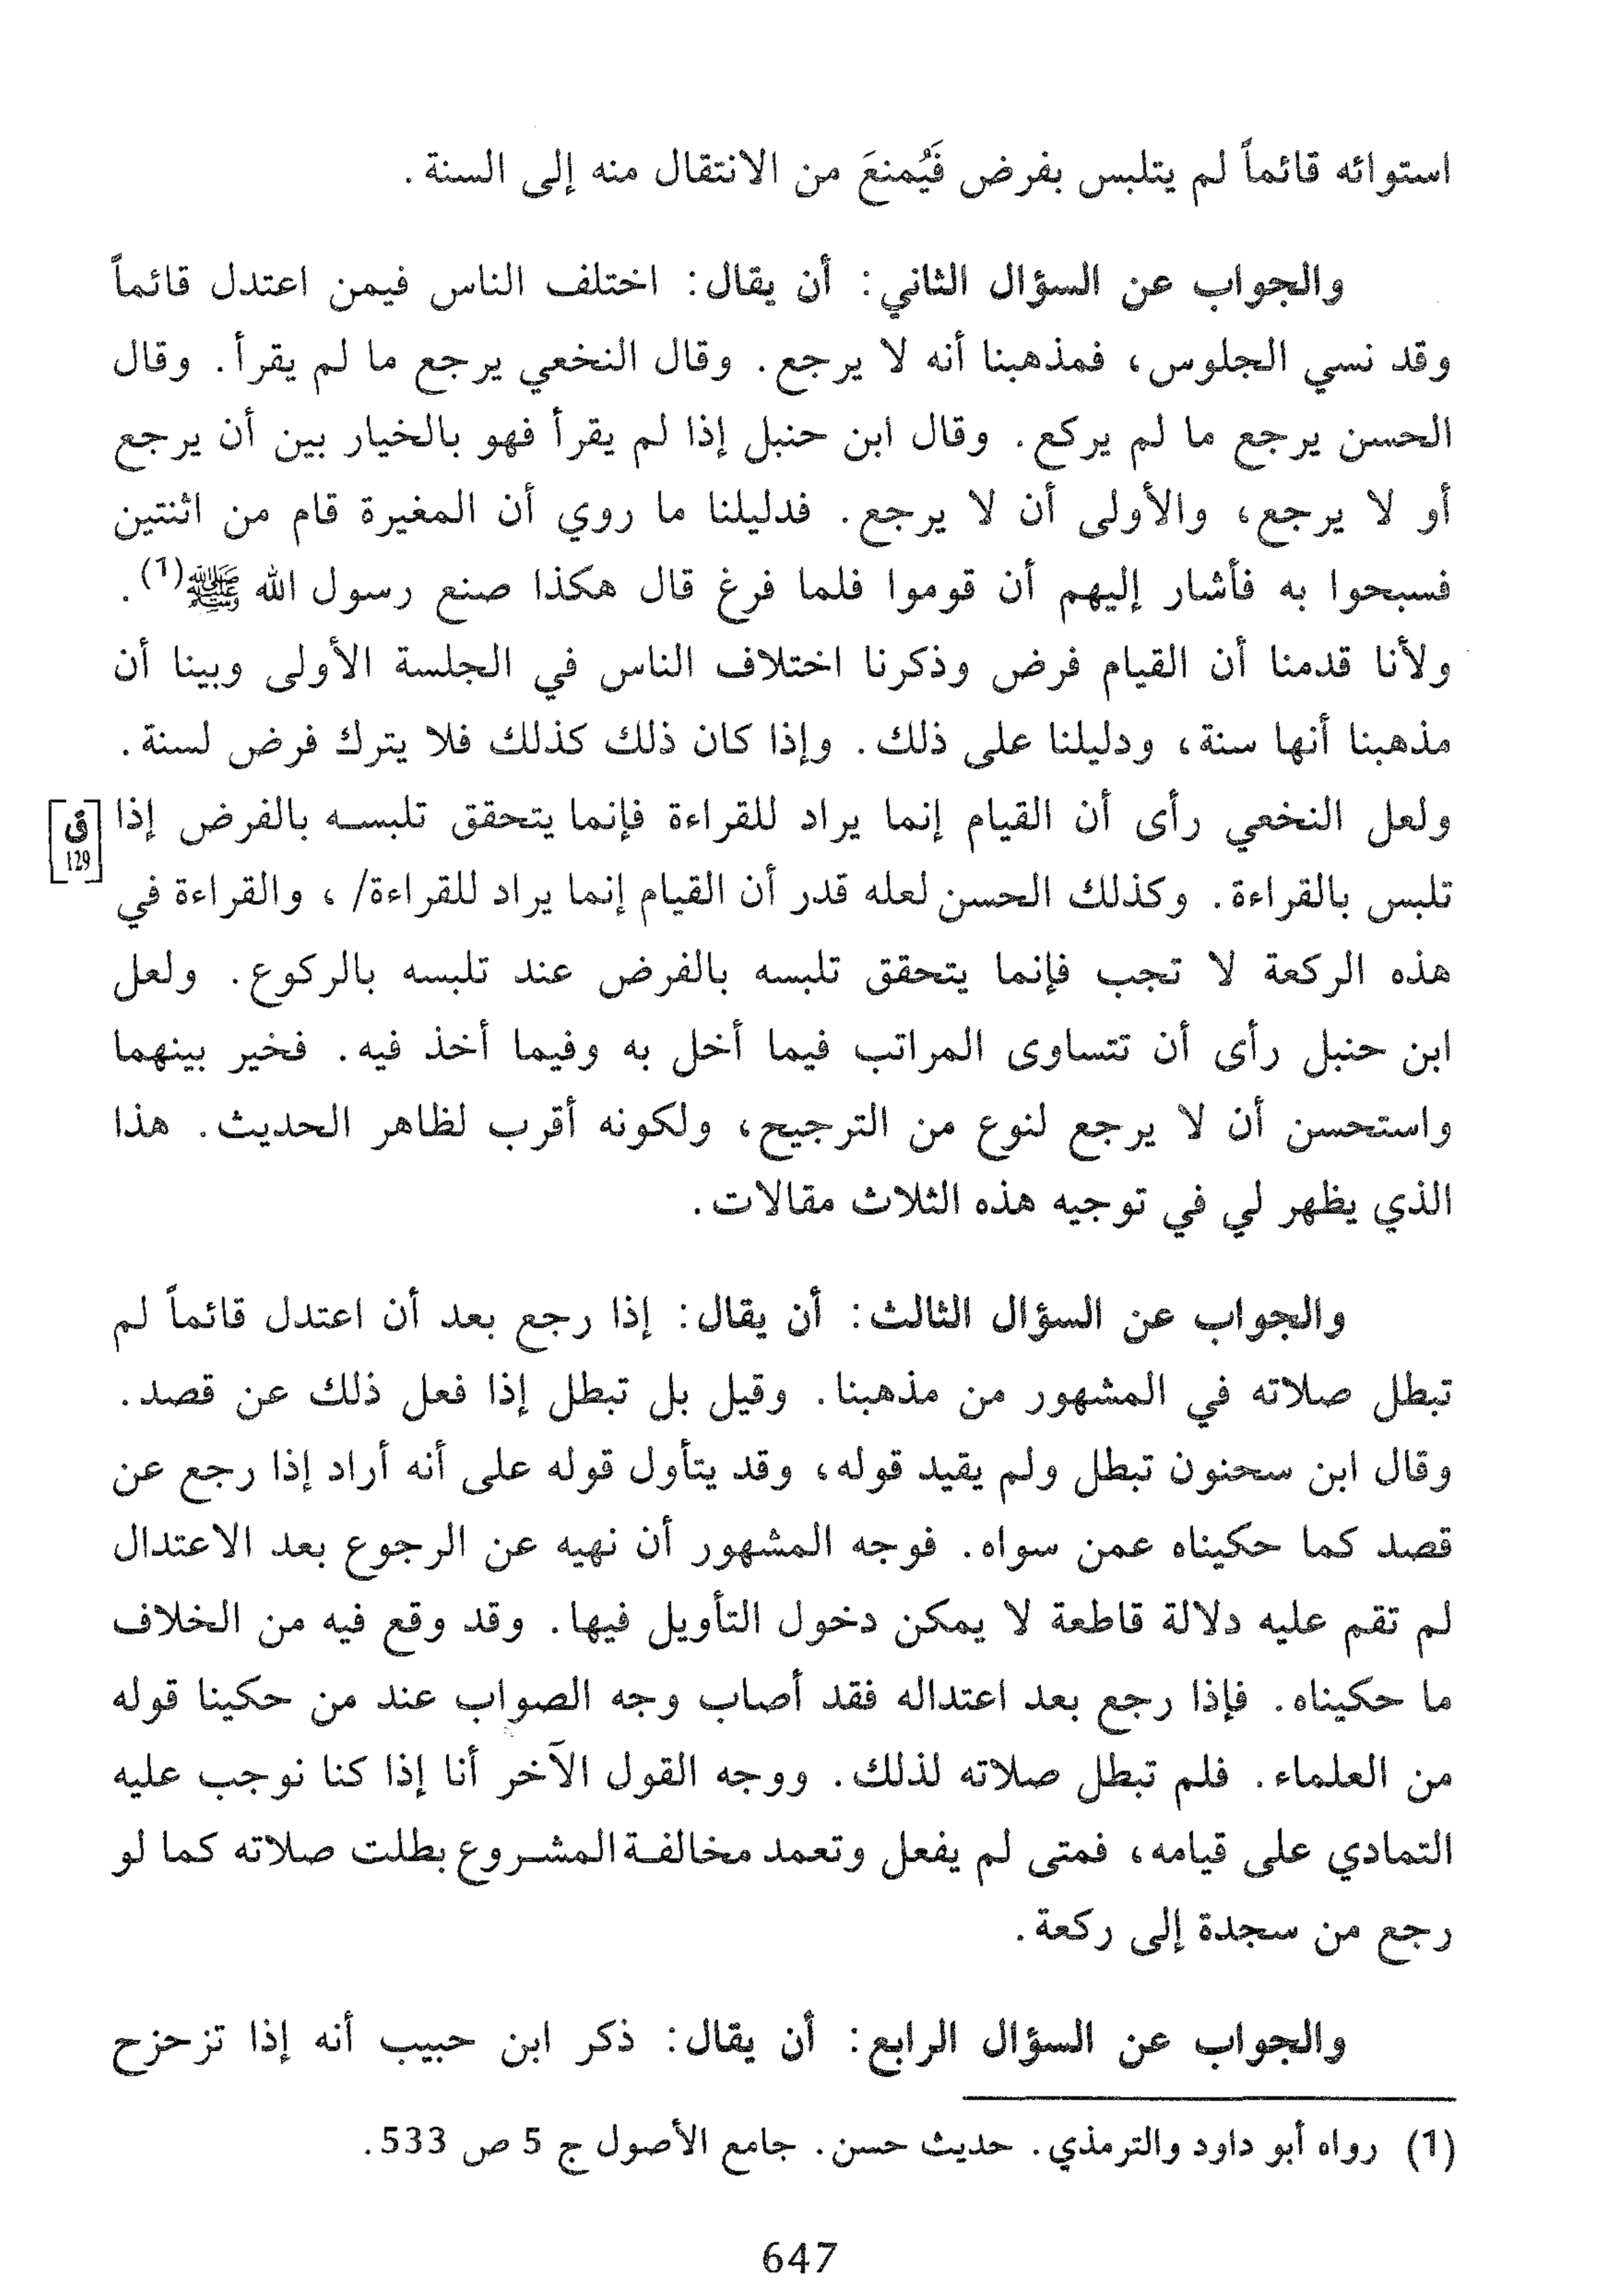 استوائه قائماً لم يتلبس بفرض فَيُمنعَ من الانتقال منه إلى السنة .
والجواب عن السؤال الثاني : أن يقال : اختلف الناس فيمن اعتدل قائماً
وقد نسي الجلوس ، فمذهبنا أنه لا يرجع . وقال النخعي يرجع ما لم يقرأ . وقال
الحسن يرجع ما لم يركع . وقال ابن حنبل إذا لم يقرأ فهو بالخيار بين أن يرجع
أو لا يرجع ، والأولى أن لا يرجع . فدليلنا ما روي أن المغيرة قام من اثنتين
فسبحوا به فأشار إليهم أن قوموا فلما فرغ قال هكذا صنع رسول الله ﷺ(1) .
ولأنا قدمنا أن القيام فرض وذكرنا اختلاف الناس في الجلسة الأولى وبينا أن
مذهبنا أنها سنة ، ودليلنا على ذلك . وإذا كان ذلك كذلك فلا يترك فرض لسنة .
ولعل النخعي رأى أن القيام إنما يراد للقراءة فإنما يتحقق تلبسه بالفرض إذا
[ق 129]
تلبس بالقراءة . وكذلك الحسن لعله قدر أن القيام إنما يراد للقراءة/ ، والقراءة في
هذه الركعة لا تجب فإنما يتحقق تلبسه بالفرض عند تلبسه بالركوع . ولعل
ابن حنبل رأى أن تتساوى المراتب فيما أخل به وفيما أخذ فيه . فخير بينهما
واستحسن أن لا يرجع لنوع من الترجيح ، ولكونه أقرب لظاهر الحديث . هذا
الذي يظهر لي في توجيه هذه الثلاث مقالات .
والجواب عن السؤال الثالث : أن يقال : إذا رجع بعد أن اعتدل قائماً لم
تبطل صلاته في المشهور من مذهبنا . وقيل بل تبطل إذا فعل ذلك عن قصد .
وقال ابن سحنون تبطل ولم يقيد قوله ، وقد يتأول قوله على أنه أراد إذا رجع عن
قصد كما حكيناه عمن سواه . فوجه المشهور أن نهيه عن الرجوع بعد الاعتدال
لم تقم عليه دلالة قاطعة لا يمكن دخول التأويل فيها . وقد وقع فيه من الخلاف
ما حكيناه . فإذا رجع بعد اعتداله فقد أصاب وجه الصواب عند من حكينا قوله
من العلماء . فلم تبطل صلاته لذلك . ووجه القول الآخر أنا إذا كنا نوجب عليه
التمادي على قيامه ، فمتى لم يفعل وتعمد مخالفة المشروع بطلت صلاته كما لو
رجع من سجدة إلى ركعة .
والجواب عن السؤال الرابع : أن يقال : ذكر ابن حبيب أنه إذا تزحزح
(1) رواه أبو داود والترمذي . حديث حسن . جامع الأصول ج 5 ص 533 .
647